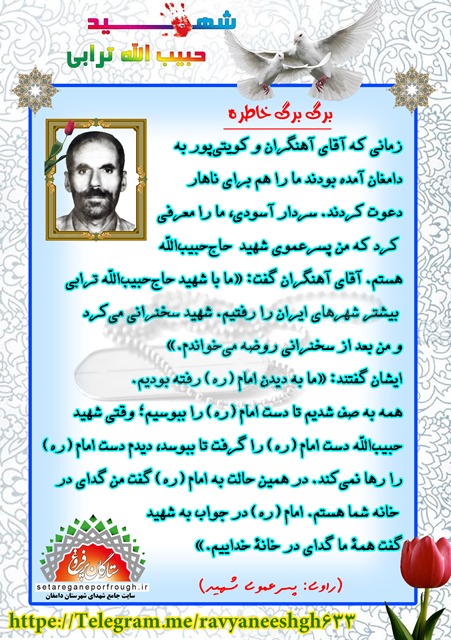 شهید
حبیب الله ترابی
برگ برگ خاطره
زمانی که آقای آهنگران و کویتی‌پور به
دامغان آمده بودند ما را هم برای ناهار
دعوت کردند. سردار آسودی، ما را معرفی
کرد که من پسرعموی شهید حاج‌حبیب‌الله
هستم. آقای آهنگران گفت: «ما با شهید حاج‌حبیب‌الله ترابی
بیشتر شهرهای ایران را رفتیم. شهید سخنرانی می‌کرد
و من بعد از سخنرانی روضه می‌خواندم.»
ایشان گفتند: «ما به دیدن امام (ره) رفته بودیم.
همه به صف شدیم تا دست امام (ره) را ببوسیم؛ وقتی شهید
حبیب‌الله دست امام (ره) را گرفت تا ببوسد، دیدم دست امام (ره)
را رها نمی‌کند. در همین حالت به امام (ره) گفت من گدای در
خانه شما هستم. امام (ره) در جواب به شهید
گفت همهٔ ما گدای در خانهٔ خداییم.»
(راوی: پسرعموی شهید)
ستارگان پرفروغ
setareganeporfrough.ir
سایت جامع شهدای شهرستان دامغان
https://Telegram.me/ravyaneeshgh633